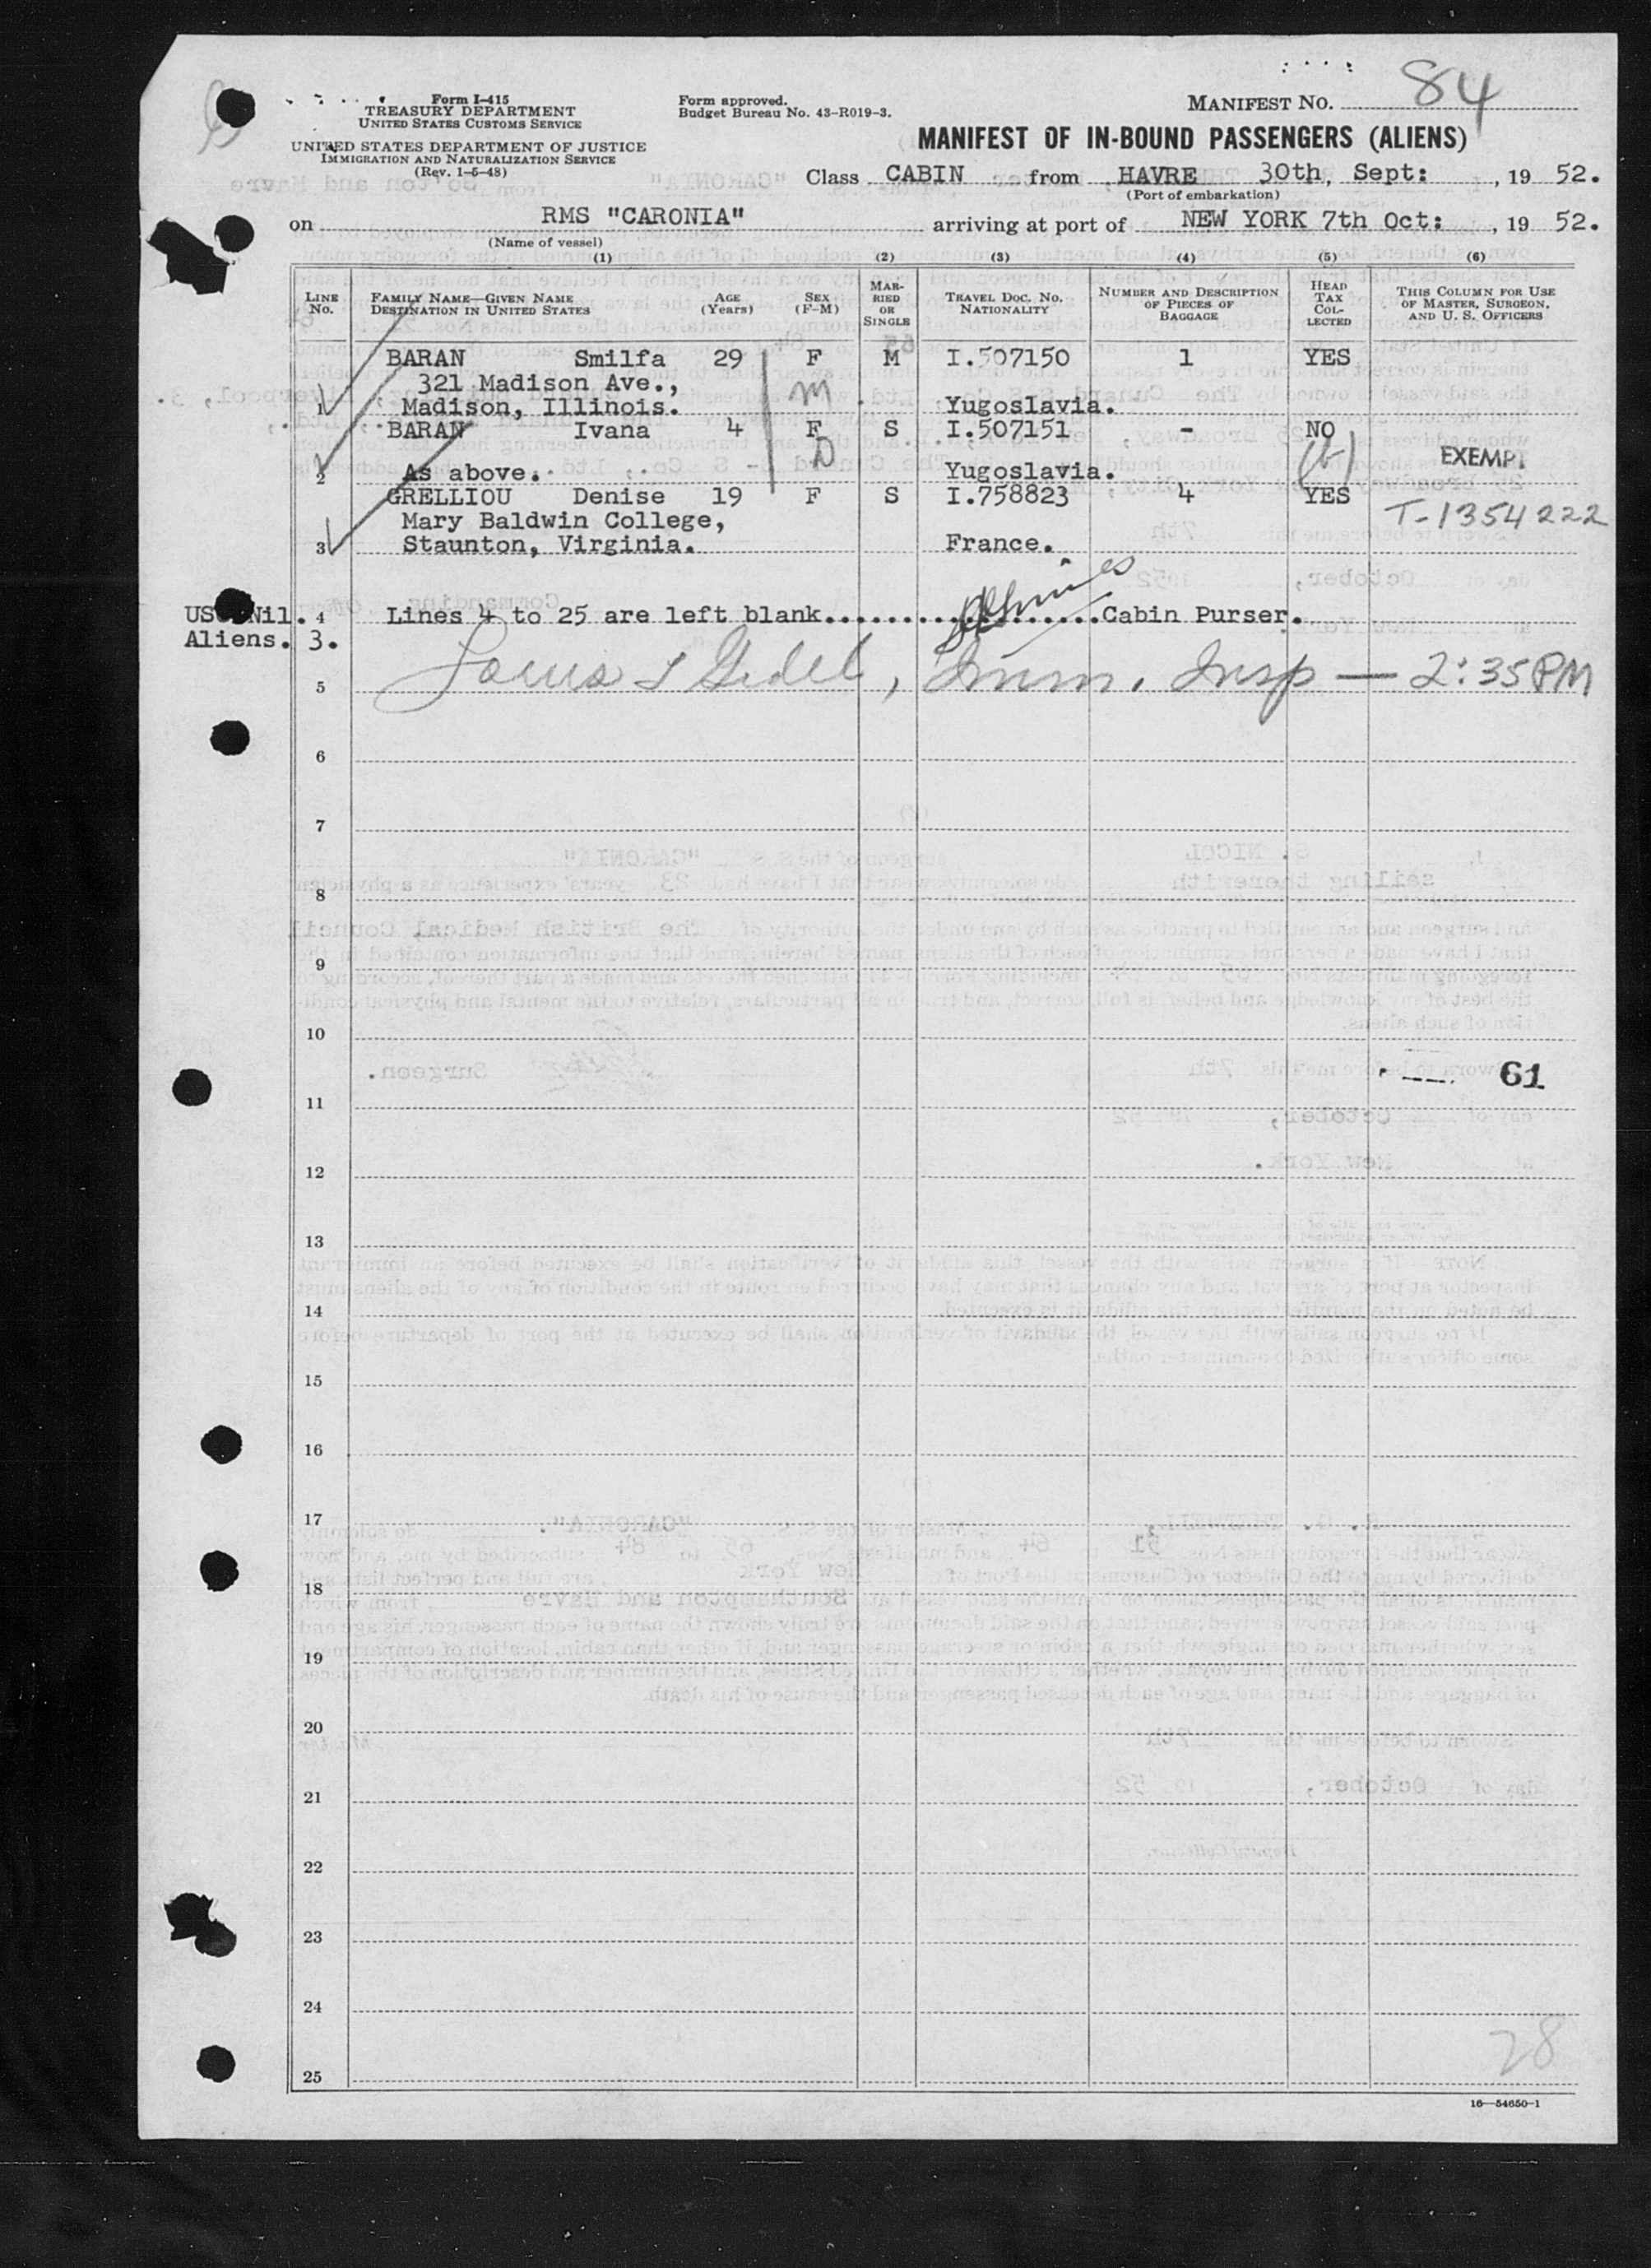 Form I-415
TREASURY DEPARTMENT
UNITED STATES CUSTOMS SERVICE
UNITED STATES DEPARTMENT OF JUSTICE
IMMIGRATION AND NATURALIZATION SERVICE
(Rev. 1-5-48)
Form approved.
Budget Bureau No. 43-R019-3.
MANIFEST NO. 84
MANIFEST OF IN-BOUND PASSENGERS (ALIENS)
Class CABIN from HAVRE 30th, Sept: , 19 52.
(Port of embarkation)
on RMS "CARONIA" arriving at port of NEW YORK 7th Oct: , 19 52.
(Name of vessel)
(1) (2) (3) (4) (5) (6)
LINE No. FAMILY NAME—GIVEN NAME DESTINATION IN UNITED STATES AGE (Years) SEX (F-M) MARRIED OR SINGLE TRAVEL DOC. NO. NATIONALITY NUMBER AND DESCRIPTION OF PIECES OF BAGGAGE HEAD TAX COLLECTED THIS COLUMN FOR USE OF MASTER, SURGEON, AND U. S. OFFICERS
BARAN Smilfa 29 F M I.507150 1 YES
321 Madison Ave., m
1 Madison, Illinois. Yugoslavia.
BARAN Ivana 4 F S I.507151 - NO
D EXEMPT
2 As above. Yugoslavia.
GRELLIOU Denise 19 F S I.758823 4 YES
Mary Baldwin College, T-1354222
3 Staunton, Virginia. France.
Nil. 4 Lines 4 to 25 are left blank. Cabin Purser.
Aliens. 3.
5 Imm. Insp — 2:35 PM
6
7
8
9
10
61
11
12
13
14
15
16
17
18
19
20
21
22
23
24
28
25
16—54650-1